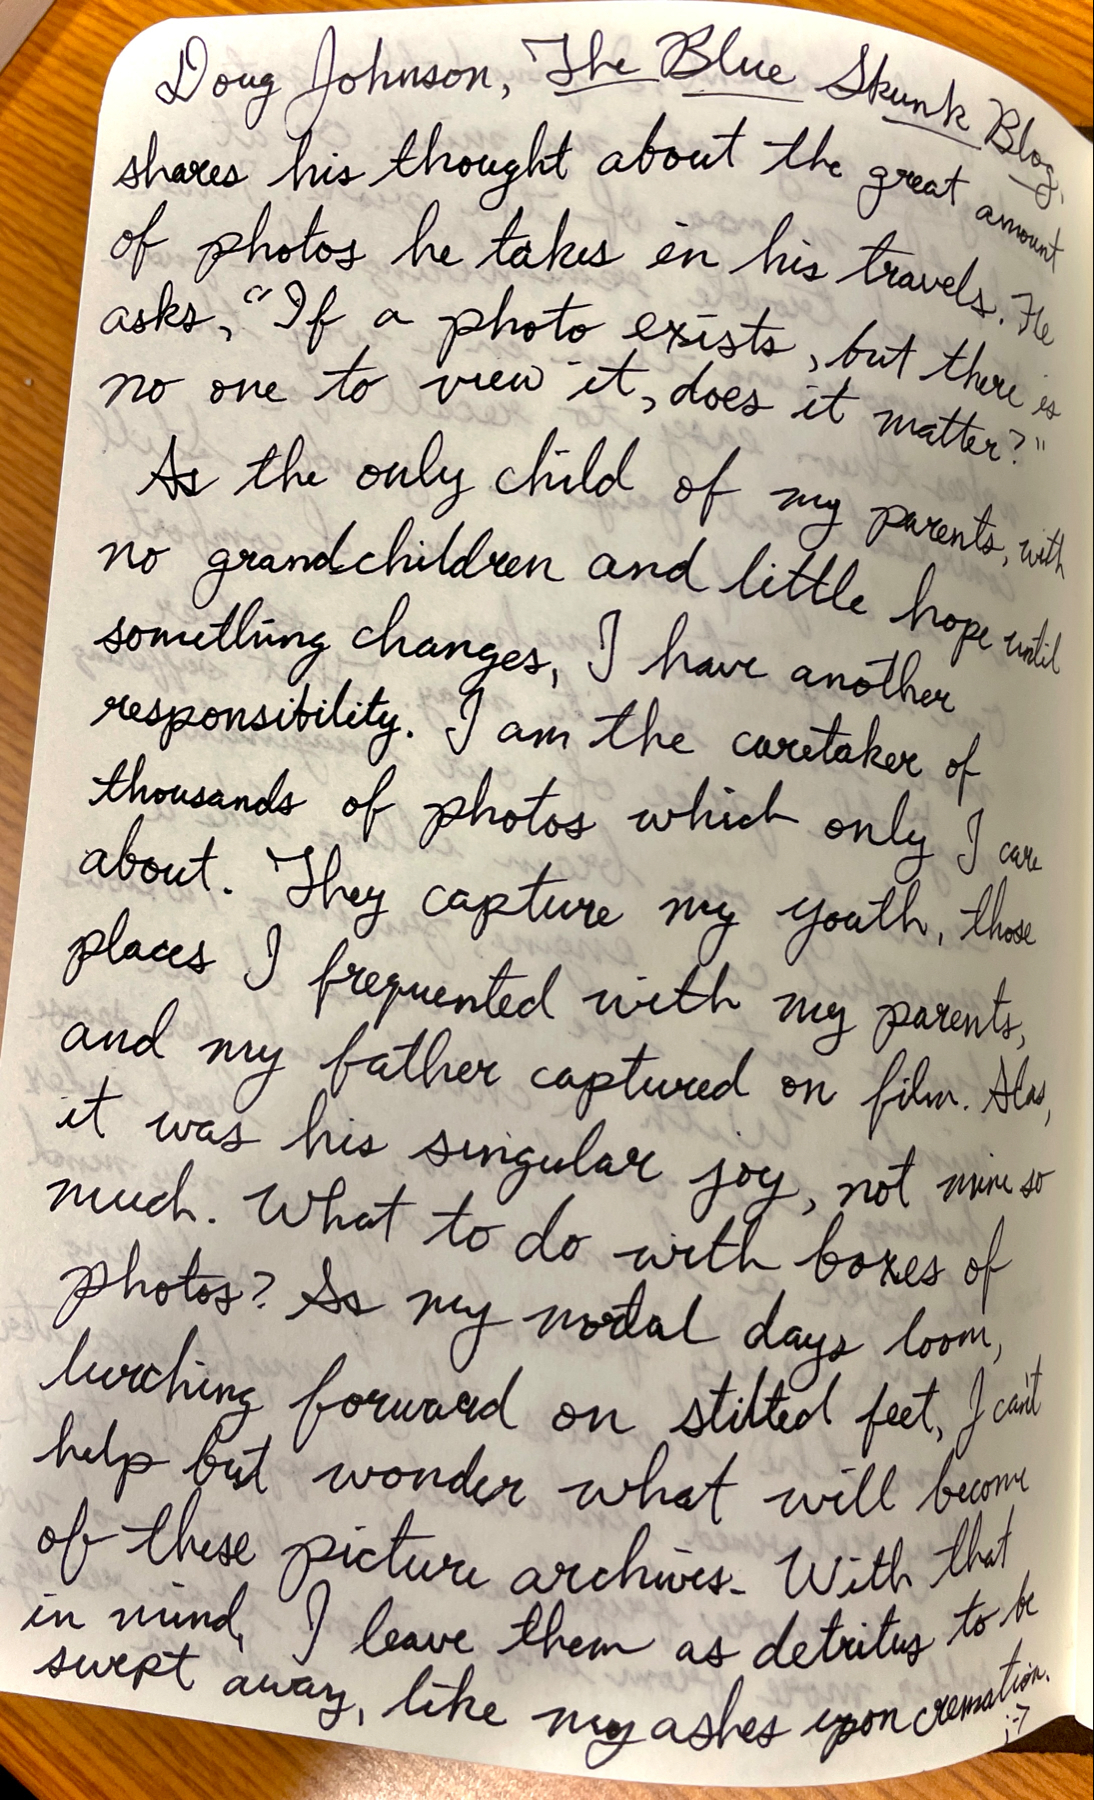 Doug Johnson, The Blue Skunk Blog,
shares his thought about the great amount
of photos he takes in his travels. He
asks, "If a photo exists, but there is
no one to view it, does it matter?"
As the only child of my parents, with
no grandchildren and little hope until
something changes, I have another
responsibility. I am the caretaker of
thousands of photos which only I care
about. They capture my youth, those
places I frequented with my parents,
and my father captured on film. Alas,
it was his singular joy, not mine so
much. What to do with boxes of
photos? As my mortal days loom,
lurching forward on stilted feet, I can't
help but wonder what will become
of these picture archives. With that
in mind, I leave them as detritus to be
swept away, like my ashes upon cremation.
;-)